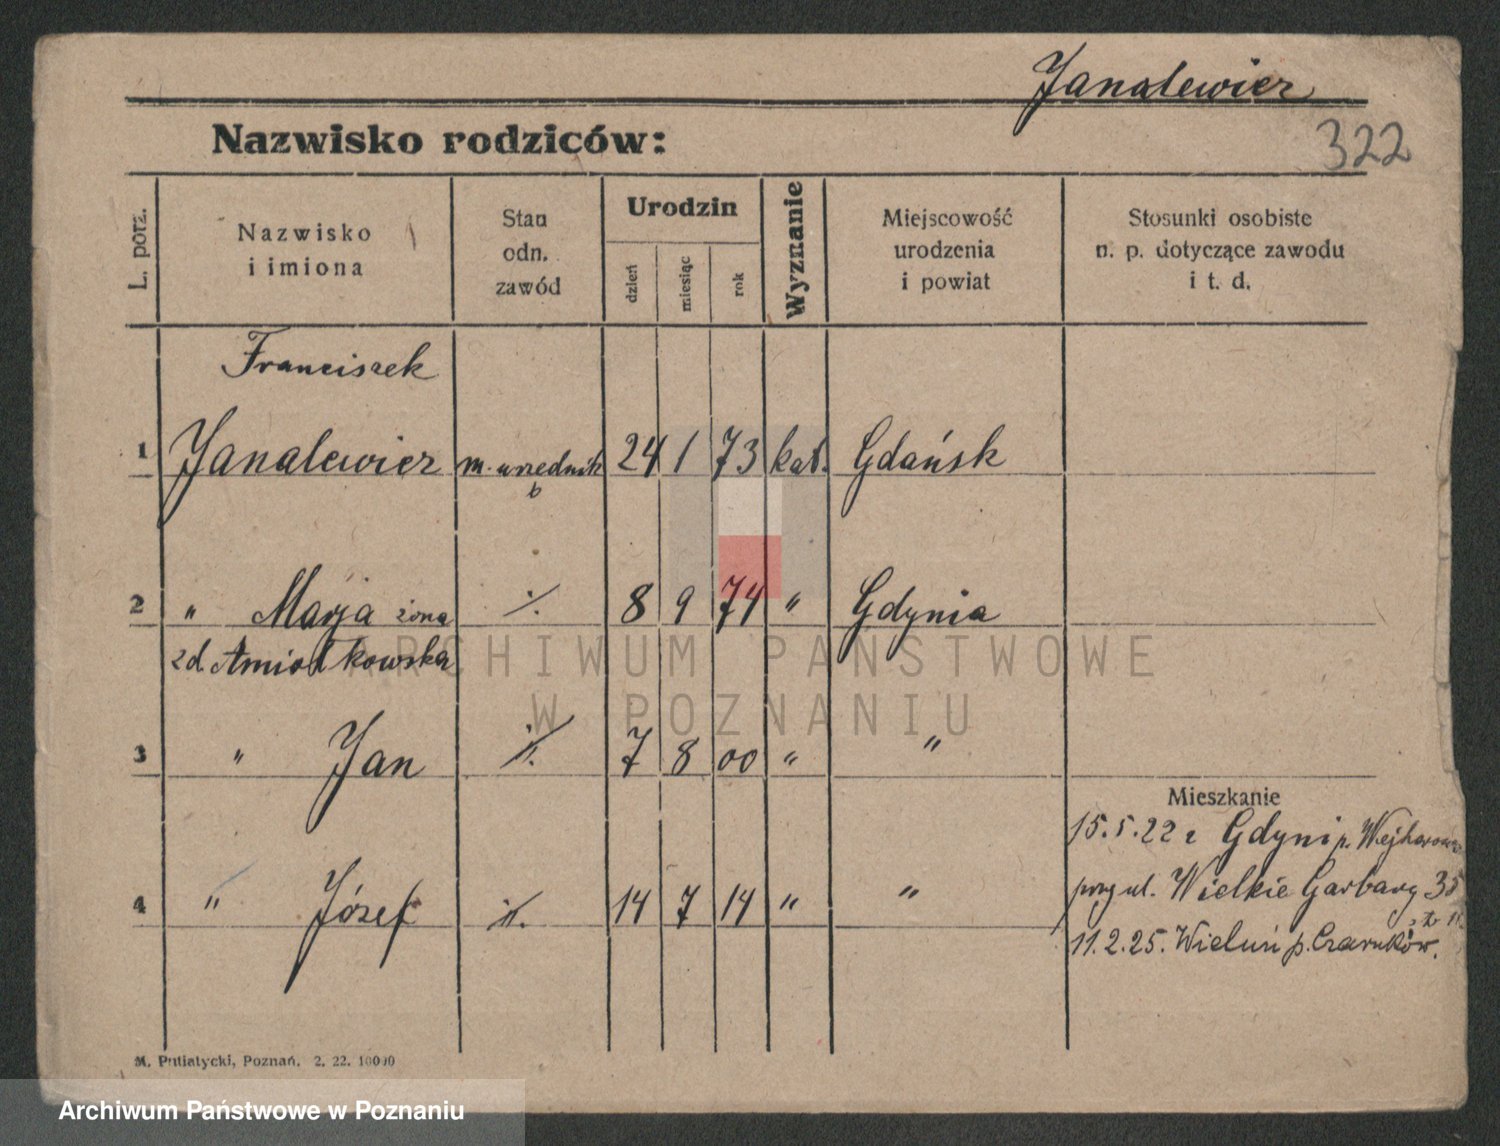 Janalewicz
Nazwisko rodziców:
322
L. porz.
Nazwisko
i imiona
Stan
odn.
zawód
Urodzin
dzień
miesiąc
rok
Wyznanie
Miejscowość
urodzenia
i powiat
Stosunki osobiste
n. p. dotyczące zawodu
i t. d.
Franciszek
1 Janalewicz m. urzednik 24 1 73 kat. Gdańsk
b
2 " Marja żona ·/. 8 9 74 " Gdynia
zd.
ARCHIWUM PAŃSTWOWE
W POZNANIU
3 " Jan 7 8 00 " "
Mieszkanie
15.5.22 z Gdyni p. Wejherowo
przy ul. Wielkie Garbary 35
4 " Józef 14 7 14 " "
11.2.25. Wieluń p. Czarnków.
M. Putiatycki, Poznań. 2. 22. 10000
Archiwum Państwowe w Poznaniu